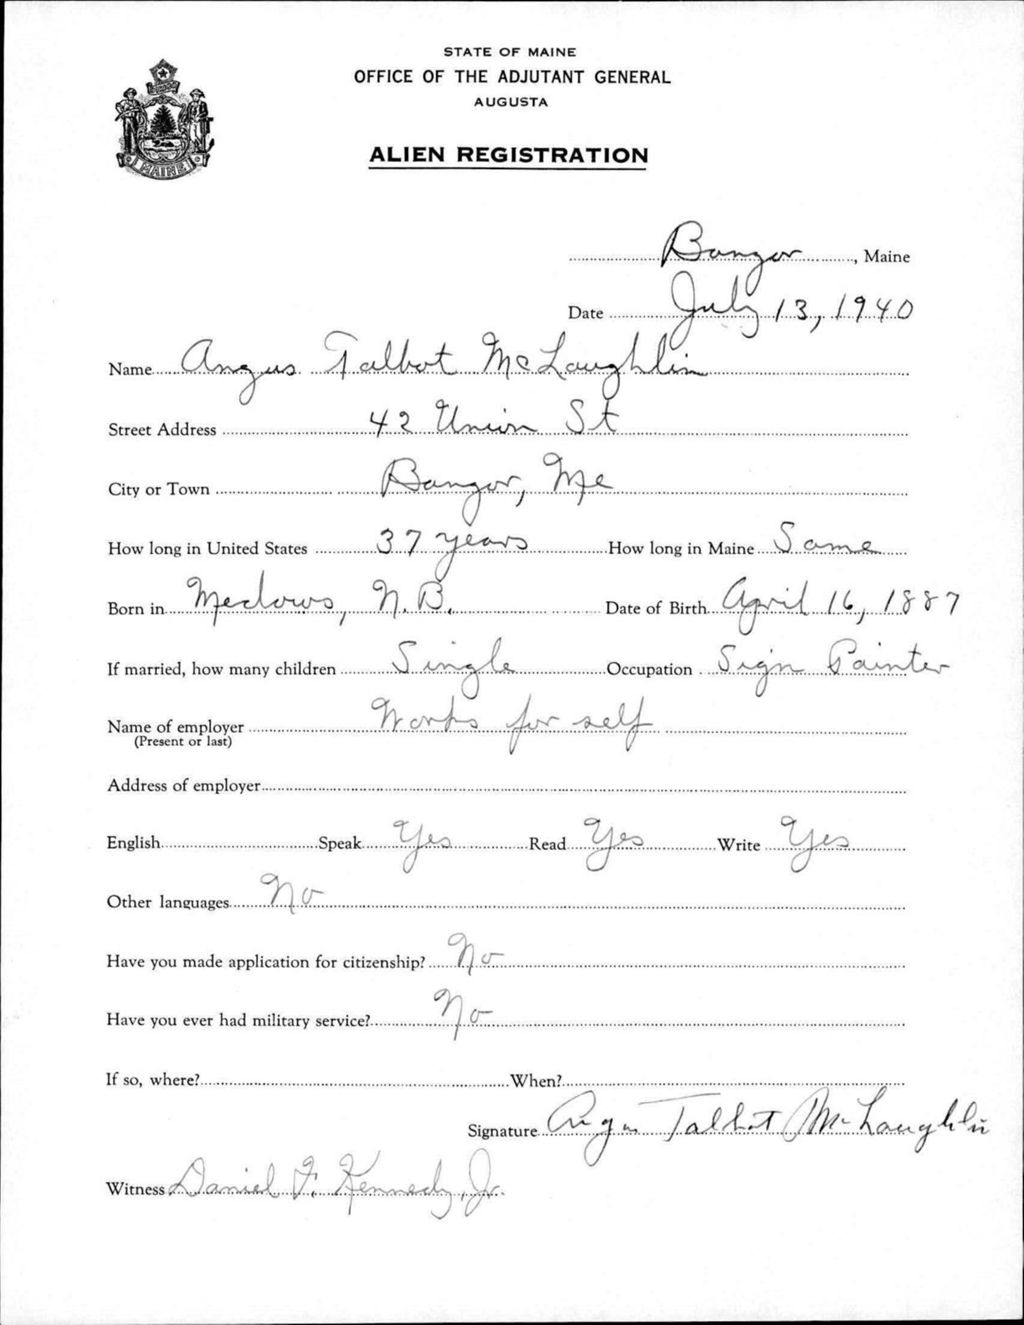 STATE OF MAINE
OFFICE OF THE ADJUTANT GENERAL
AUGUSTA
ALIEN REGISTRATION
MAINE
Bangor, Maine
Date July 13, 1940
Name Angus Talbot McLaughlin
Street Address 42 Union St
City or Town Bangor, Me
How long in United States 37 years How long in Maine Same
Born in Medows, N.B. Date of Birth April 16, 1887
If married, how many children Single Occupation Sign Painter
Name of employer Works for self
(Present or last)
Address of employer
English Speak Yes Read Yes Write Yes
Other languages No
Have you made application for citizenship? No
Have you ever had military service? No
If so, where? When?
Signature Angus Talbot McLaughlin
Witness Daniel F. Kennedy, Jr.